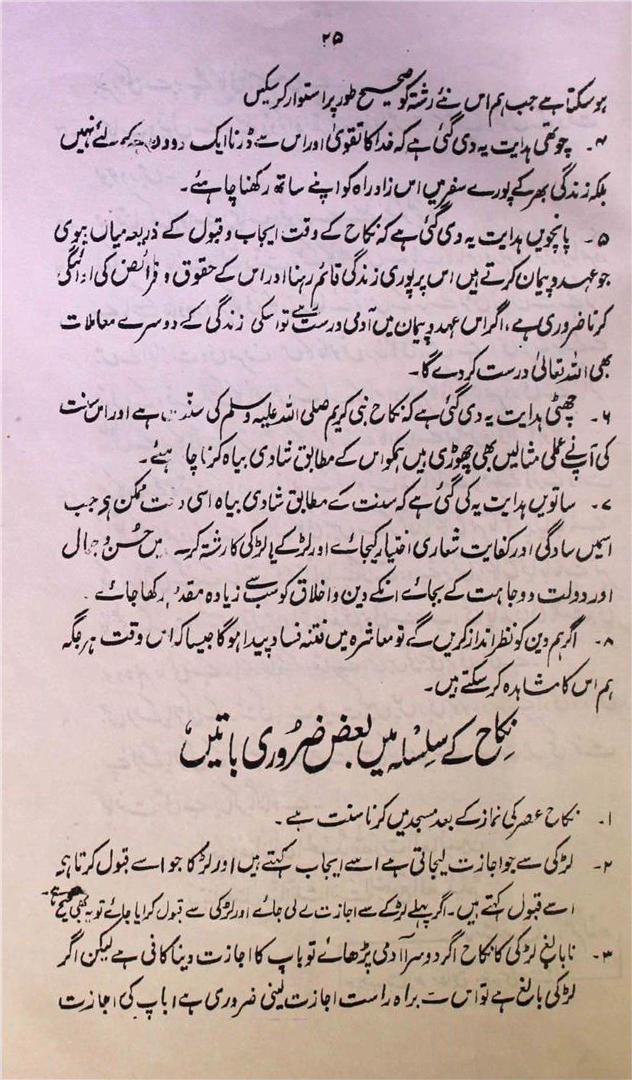 ۲۵
ہوسکتا ہے جب ہم اس نئے رشتہ کو صحیح طور پر استوار کرسکیں
۴۔ چوتھی ہدایت یہ دی گئی ہے کہ خدا کا تقویٰ اور اس سے ڈرنا ایک دو دن کیلئے نہیں
بلکہ زندگی بھر کے پورے سفر میں اس زاد راہ کو اپنے ساتھ رکھنا چاہئے۔
۵۔ پانچویں ہدایت یہ دی گئی ہے کہ نکاح کے وقت ایجاب و قبول کے ذریعہ میاں بیوی
جو عہد و پیمان کرتے ہیں اس پر پوری زندگی قائم رہنا اور اس کے حقوق و فرائض کی ادائگی
کرنا ضروری ہے، اگر اس عہد و پیمان میں آدمی درست ہے تو اسکی زندگی کے دوسرے معاملات
بھی اللہ تعالیٰ درست کردے گا۔
۶۔ چھٹی ہدایت یہ دی گئی ہے کہ نکاح نبی کریم صلی اللہ علیہ وسلم کی سنت ہے اور اس سنت
کی آپنے عملی مثالیں بھی چھوڑی ہیں ہمکو اس کے مطابق شادی بیاہ کرنا چاہئے۔
۷۔ ساتویں ہدایت یہ کی گئی ہے کہ سنت کے مطابق شادی بیاہ اسی وقت ممکن ہے جب
اسمیں سادگی اور کفایت شعاری اختیار کیجائے اور لڑکے یا لڑکی کا رشتہ کرنے میں حسن و جمال
اور دولت و وجاہت کے بجائے انکے دین و اخلاق کو سب سے زیادہ مقدم رکھا جائے۔
۸۔ اگر ہم دین کو نظر انداز کریں گے تو معاشرہ میں فتنہ فساد پیدا ہوگا جیسا کہ اس وقت ہر جگہ
ہم اس کا مشاہدہ کرسکتے ہیں۔
نکاح کے سلسلہ میں بعض ضروری باتیں
۱۔ نکاح عصر کی نماز کے بعد مسجد میں کرنا سنت ہے۔
۲۔ لڑکی سے جو اجازت لیجاتی ہے اسے ایجاب کہتے ہیں اور لڑکا جو اسے قبول کرتا ہے
اسے قبول کہتے ہیں۔ اگر پہلے لڑکے سے اجازت لے لی جائے اور لڑکی سے قبول کرایا جائے تو یہ بھی صحیح ہے۔
۳۔ نابالغ لڑکی کا نکاح اگر دوسرا آدمی پڑھائے تو باپ کا اجازت دینا کافی ہے لیکن اگر
لڑکی بالغ ہے تو اس سے براہ راست اجازت لینی ضروری ہے، باپ کی اجازت